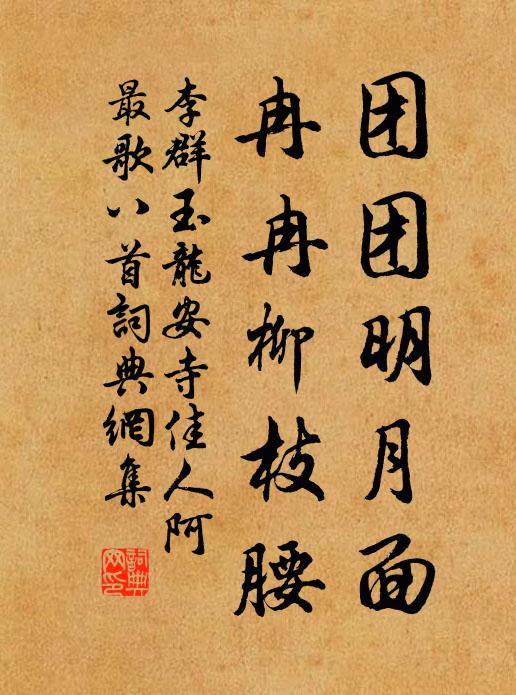 团团明月面
冉冉柳枝腰
李群玉龍安寺佳人阿
最歌八首詞典網集
詞典網印